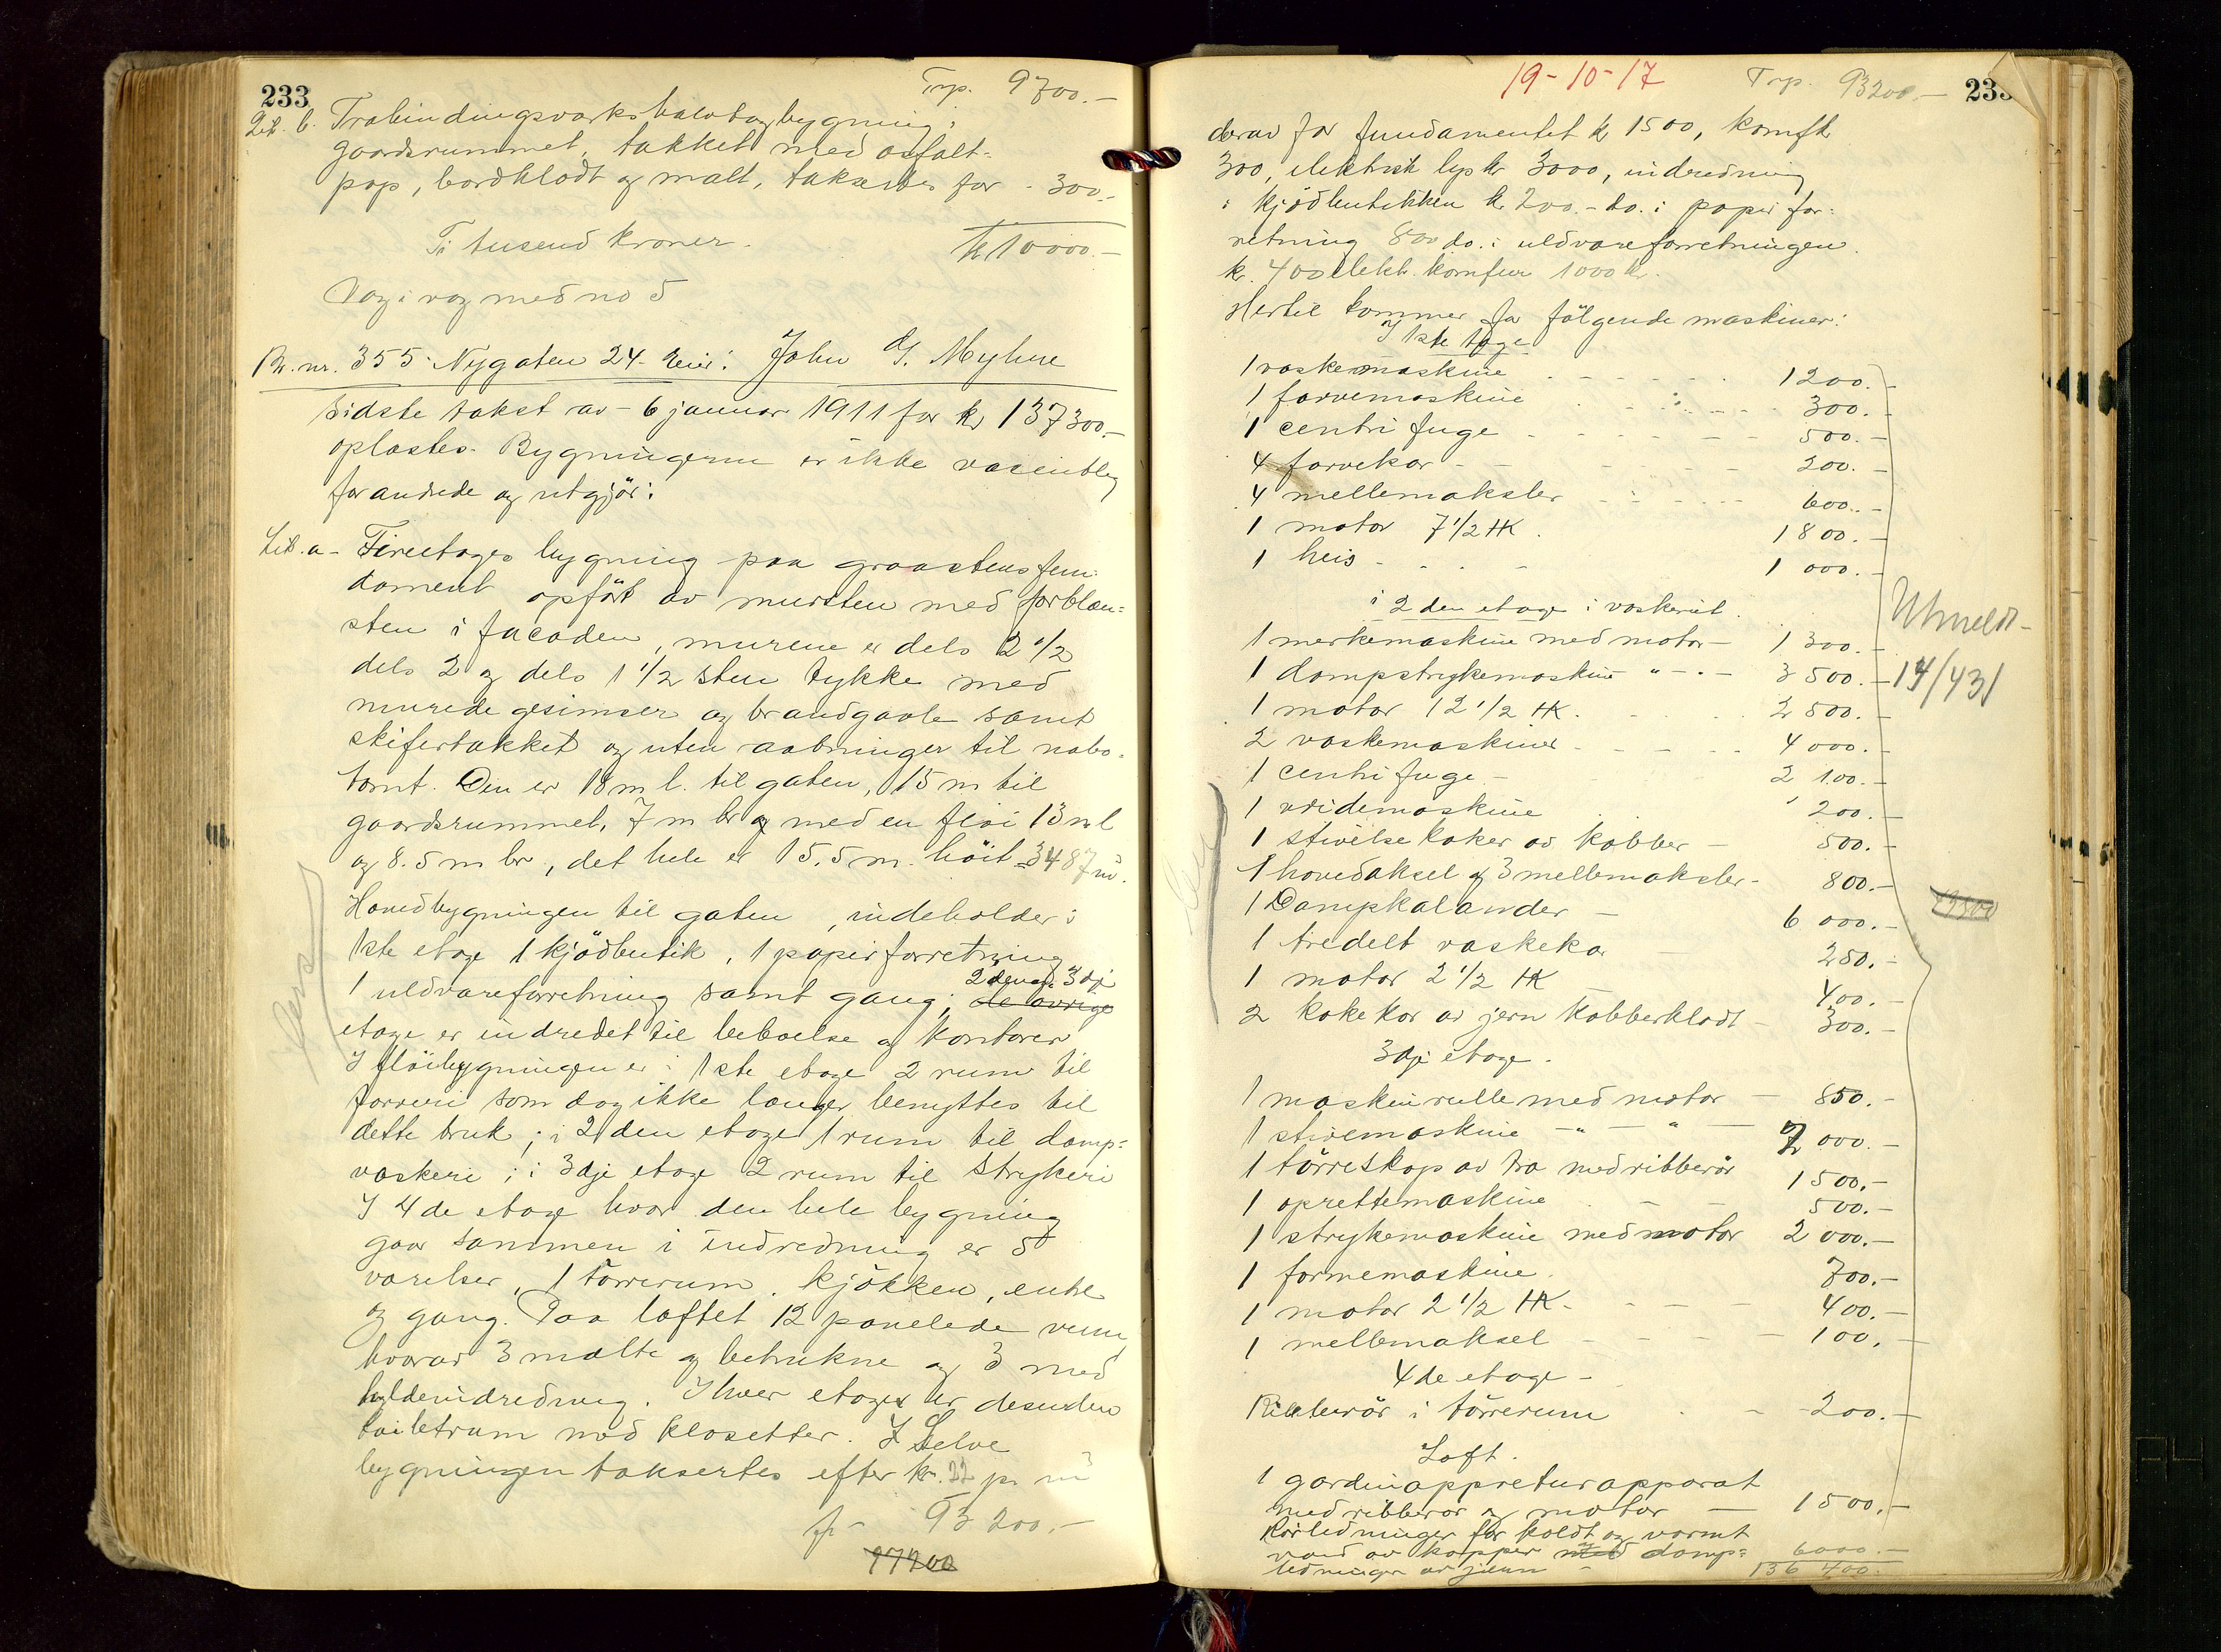 233
Trp. 9700.-
Lit. b. Træbindingsverks halvtagbygning i
gaardsrummet, tækket med asfalt-
pap, bordklædt og malt, takseres for - 300.-
Ti tusend kroner. kr 10000.-
Væg i væg med no 5
Br. nr. 355 Nygaten 24. Eier: John G. Myhre
Sidste takst av - 6 januar 1911 for kr 137300.-
oplæstes. Bygningerne er ikke væsentlig
forandrede og utgjör:
Lit. a - Fireetages bygning paa graastensfun-
dament opfört av mursten med forblæn-
sten i facaden, murene er dels 2 1/2
dels 2 og dels 1 1/2 sten tykke med
murede gesimser og brandgavle samt
skifertækket og uten aabninger til nabo-
tomt. Den er 18 m l. til gaten, 15 m til
gaardsrummet, 7 m br og med en flöi 13 m l
og 8.5 m br, det hele er 15.5 m. höit = 3487 m³.
Hovedbygningen til gaten, indeholder i
1ste etage 1 kjödbutik, 1 papirforretning
1 uldvareforretning samt gang; de övrige 2den og 3dje
etage er indredet til beboelse og kontorer
I flöibygningen er i 1ste etage 2 rum til
farveri som dog ikke længer benyttes til
dette bruk; i 2den etage 1 rum til damp-
vaskeri; i 3dje etage 2 rum til strykeri
I 4de etage hvor den hele bygning
gaar sammen i indredning er 5
værelser, 1 törrerum, kjökken, entre
og gang. Paa loftet 12 panelede rum,
hvorav 3 malte og betrukne og 3 med
hyldeindredning. I hver etage er desuden
toiletrum med klosetter. Selve
bygningen takseres efter kr. 22 pr m³
93 200.-
77200
19-10-17
Trp. 93200.-
233
derav for fundamentet kr 1500, komf.
300, elektrisk lys kr 3000, indredning
i kjödbutikken kr 200.- do. i papirfor-
retning 800 do. i uldvareforretningen
kr. 400 elekt. komfur 1000 kr.
Hertil kommer for fölgende maskiner:
I 1ste etage
1 vaskemaskine - 1200.-
1 farvemaskine - 300.-
1 centrifuge - 500.-
4 farvekar - 200.-
4 mellemaksler - 600.-
1 motor 7 1/2 HK. 1800.-
1 heis - 1 000.-
i 2den etage i vaskeriet.
1 merkemaskine med motor - 1 300.-
1 dampstrykemaskine " - " - 3 500.-
Utmeldt
14/431
1 motor 12 1/2 HK. 2 500.-
2 vaskemaskiner - 4 000.-
1 centrifuge - 2 100.-
1 vridemaskine 200.-
1 stivelsekoker av kobber - 500.-
1 hovedaksel og 3 mellemaksler - 800.-
1 Dampkalander - 6 000.-
1 tredelt vaskekar 250.-
1 motor 2 1/2 HK 400.-
2 kokekar av jern kobberklædt - 300.-
3dje etage.
1 maskinrulle med motor - 850.-
1 stivemaskine - " - " - 2 000.-
1 törreskap av træ med ribberör 1500.-
1 oprettemaskine - 500.-
1 strykemaskine med motor 2 000.-
1 formemaskine. 700.-
1 motor 2 1/2 HK. - 400.-
1 mellemaksel - 100.-
4de etage -
Ribberör i törrerum - 200.-
Loft.
1 gardinappreturapparat
med ribberör og motor - 1500.-
Rörledninger for koldt og varmt
vand av kopper med damp-
ledninger av jern - 6000.-
136 400.-